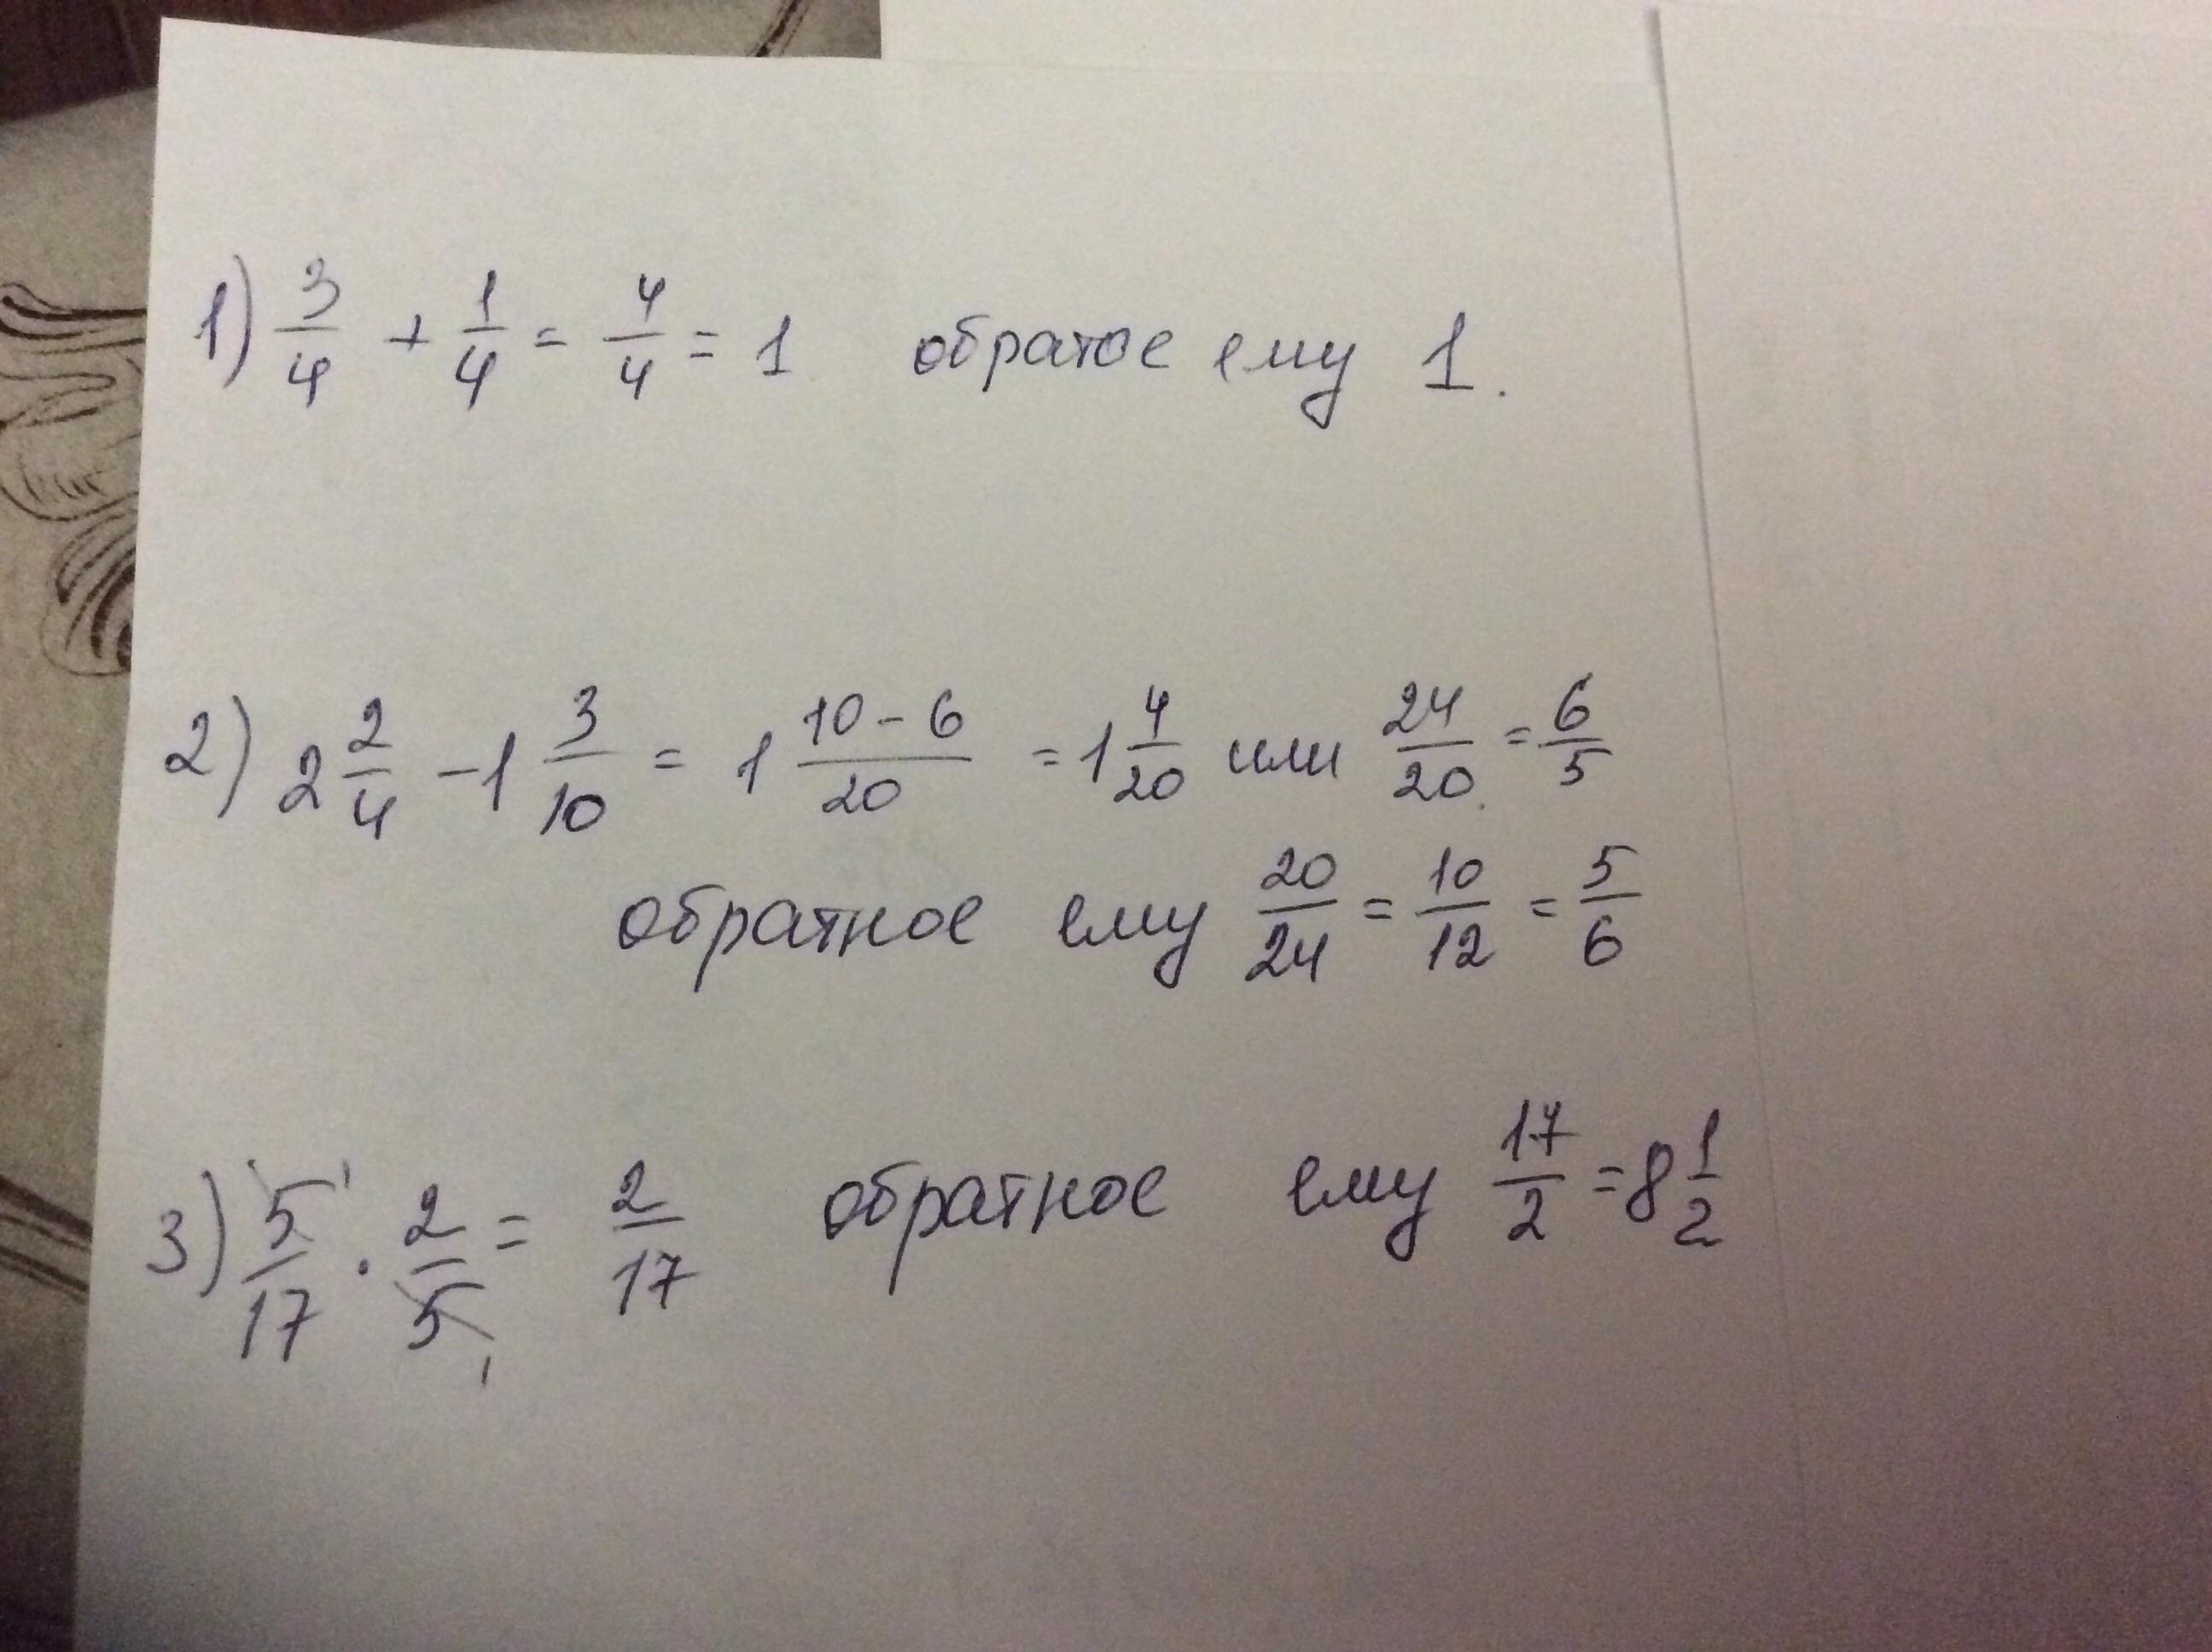 1) 3/4 + 1/4 = 4/4 = 1 обратое ему 1.
2) 2 2/4 - 1 3/10 = 1 10-6/20 = 1 4/20 или 24/20 = 6/5
обратное ему 20/24 = 10/12 = 5/6
3) 5/17 · 2/5 = 2/17 обратное ему 17/2 = 8 1/2